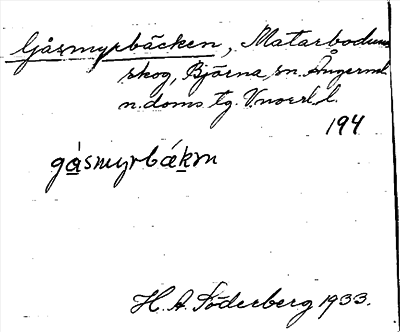 Gåsmyrbäcken, Matarbodums
skog, Björna sn. Ångerml.
n. doms tg. Vnorrl. l.
194
gåsmyrbäkɱ
H. A. Söderberg 1933.